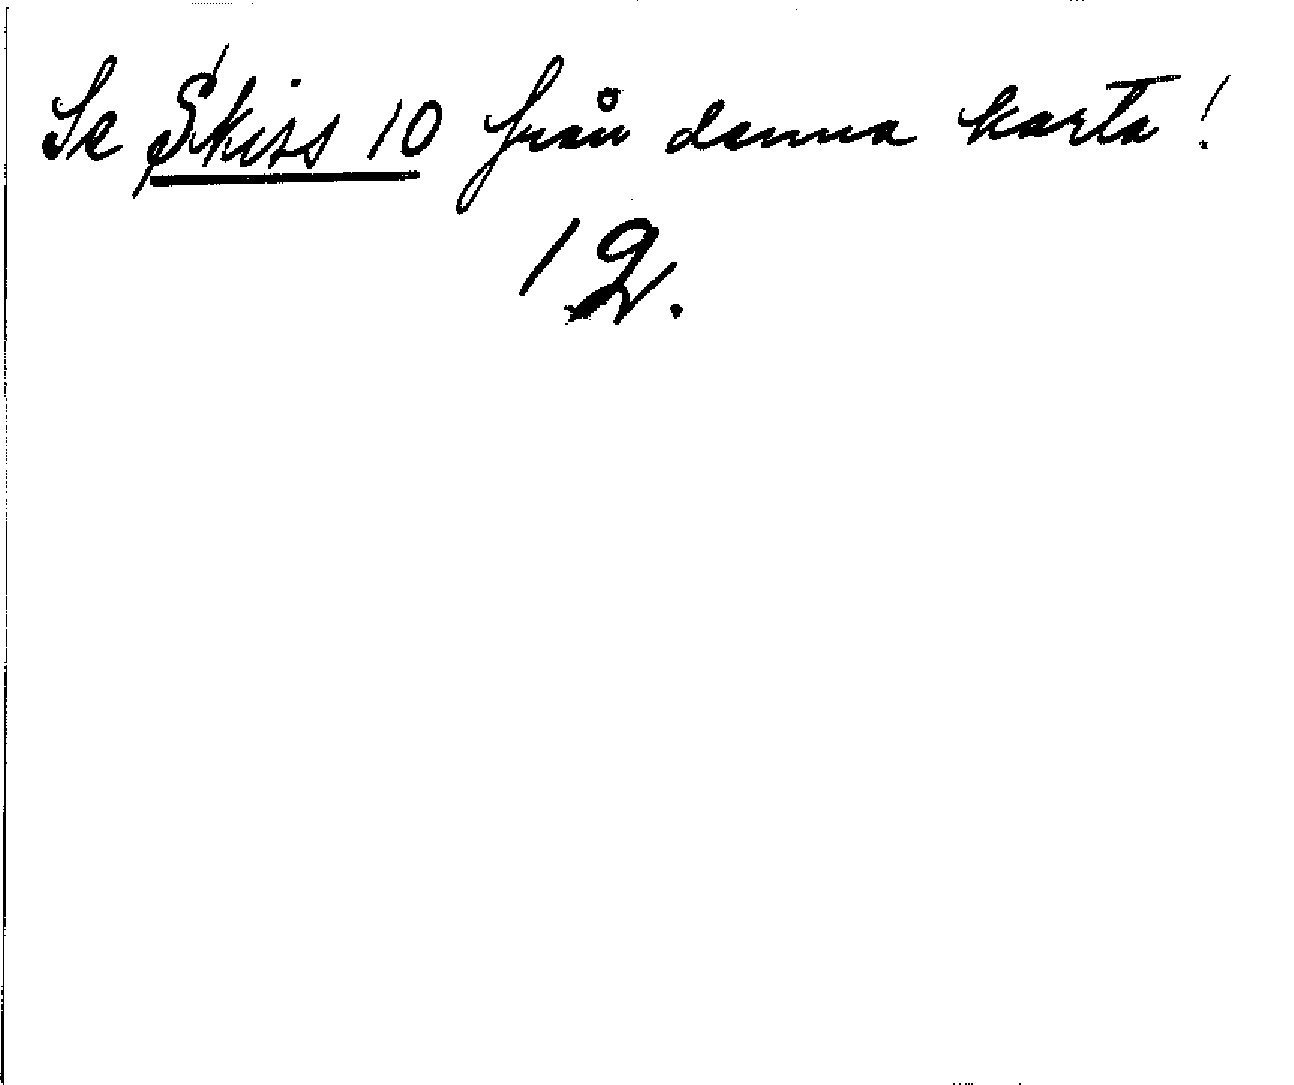 Se Skiss 10 från denna karta!
12.